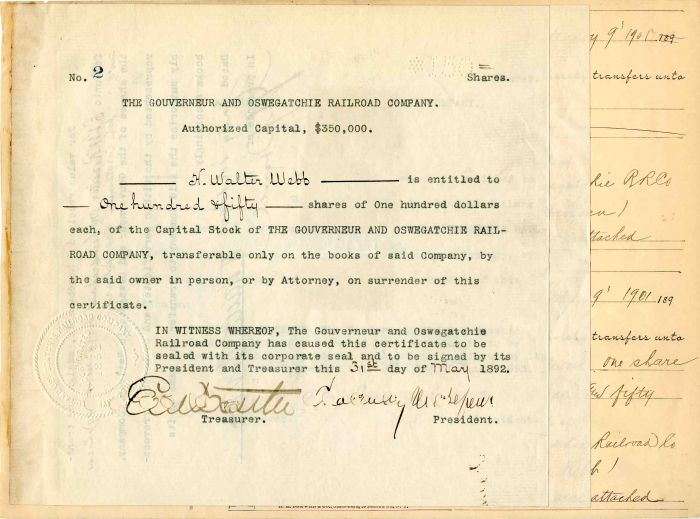 No. 2
*150=
Shares.
THE GOUVERNEUR AND OSWEGATCHIE RAILROAD COMPANY.
Authorized Capital, $350,000.
H. Walter Webb is entitled to
One hundred & fifty shares of One hundred dollars
each, of the Capital Stock of THE GOUVERNEUR AND OSWEGATCHIE RAIL-
ROAD COMPANY, transferable only on the books of said Company, by
the said owner in person, or by Attorney, on surrender of this
certificate.
IN WITNESS WHEREOF, The Gouverneur and Oswegatchie
Railroad Company has caused this certificate to be
sealed with its corporate seal and to be signed by its
President and Treasurer this 31st day of May 1892.
Treasurer.
President.
9' 1901 189
transfers unto
RR Co
attached
9' 1901 189
transfers unto
one share
fifty
Railroad Co
attached